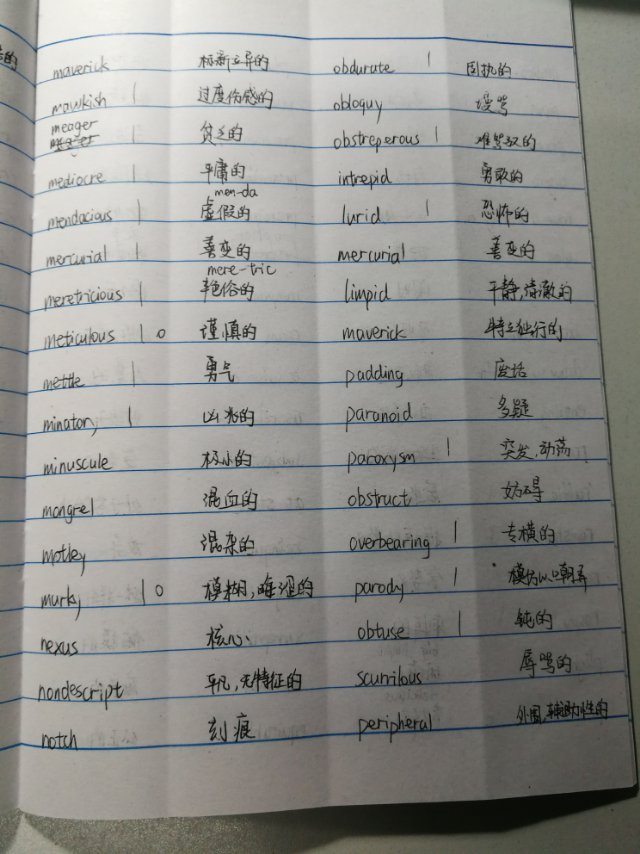 的
maverick 标新立异的 obdurate | 固执的
mawkish | 过度伤感的 obloquy 谩骂
meager
| 贫乏的 obstreperous | 难驾驭的
mediocre 平庸的 intrepid 勇敢的
men-da
mendacious | 虚假的 lurid | 恐怖的
mercurial | 善变的 mercurial 善变的
mere-tric
meretricious | 艳俗的 limpid 平静,清澈的
meticulous | o 谨慎的 maverick 特立独行的
mettle | 勇气 padding 废话
minatory | 凶兆的 paranoid 多疑
minuscule 极小的 paroxysm | 突发,动荡
mongrel 混血的 obstruct 妨碍
motley 混杂的 overbearing | 专横的
murky | o 模糊,晦涩的 parody | 模仿以嘲弄
nexus 核心 obtuse | 钝的
nondescript 平凡,无特征的 scurrilous 辱骂的
notch 刻痕 peripheral 外围,辅助性的